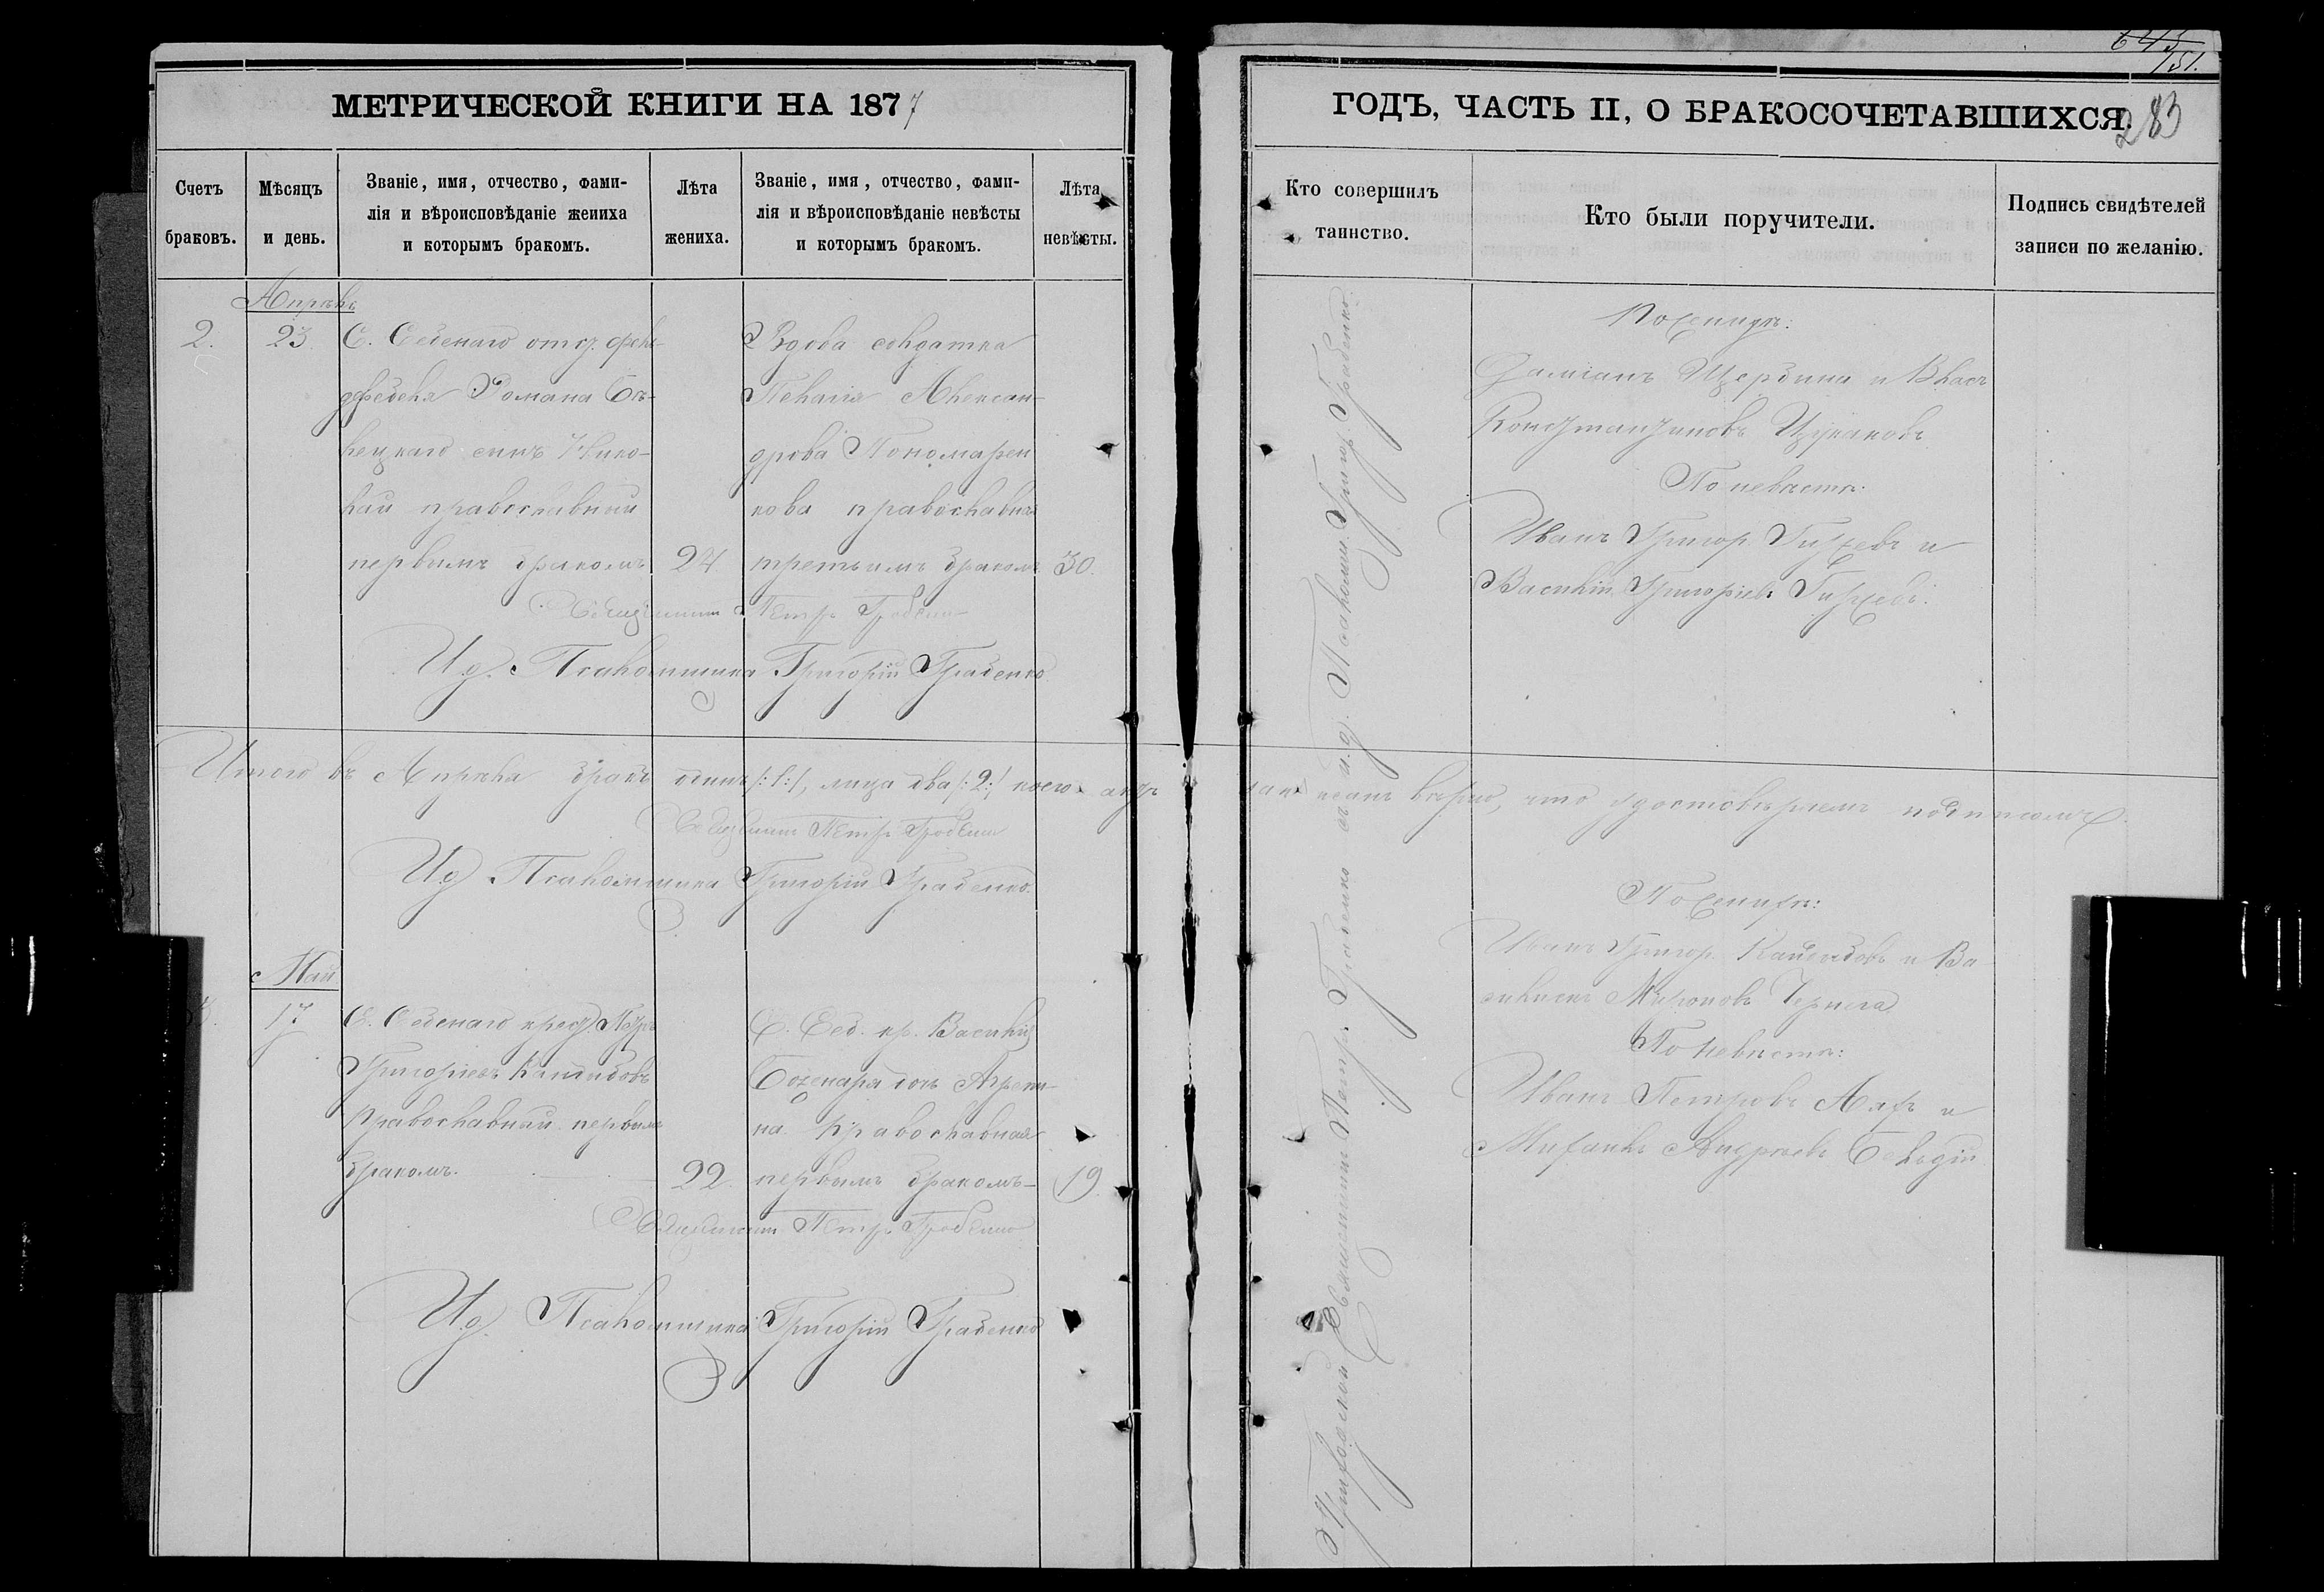 643
751.
283
МЕТРИЧЕСКОЙ КНИГИ НА 1877
ГОДЪ, ЧАСТЬ II, О БРАКОСОЧЕТАВШИХСЯ.
Счетъ
браковъ.
Мѣсяцъ
и день.
Званіе, имя, отчество, фами-
лія и вѣроисповѣданіе жениха
и которымъ бракомъ.
Лѣта
жениха.
Званіе, имя, отчество, фами-
лія и вѣроисповѣданіе невѣсты
и которымъ бракомъ.
Лѣта
невѣсты.
Кто совершилъ
таинство.
Кто были поручители.
Подпись свидѣтелей
записи по желанію.
Апрѣль
2.
23
С. отст. фельд-
Романа Бѣ-
лецкаго сынъ Нико-
лай православный
первымъ бракомъ
24
Вдова солдатка
Пелагія Алексан-
дрова Пономарен
кова православная
третьимъ бракомъ
30.
Священникъ Петръ Грабенко
И. д. Псаломщика Григорій Грабенко
По женихѣ:
Даміанъ Щербина и Власъ
Константиновъ
По невѣстѣ:
Иванъ Григор. и
Василій Григоріевъ
Итого въ Апрѣлѣ бракъ одинъ /:1:/, лица два /:2:/
писанъ вѣрно, что удостовѣряемъ подписомъ
Священникъ Петръ Грабенко
И. д. Псаломщика Григорій Грабенко
Май
17
С. крест. Петръ
Григоріевъ
Православный первымъ
бракомъ.
22.
С. кр. Василія
дочь Агрепи-
на Православная
первымъ бракомъ
19
Священникъ Петръ Грабенко
И. д. Псаломщика Григорій Грабенко
По женихѣ:
Иванъ Григор. и Ва-
Мироновъ Чернега
По невѣстѣ:
Иванъ Петровъ и
Михаилъ Андреевъ
Приходской Священникъ Петръ Грабенко съ и. д. Псаломщ. Григор. Грабенко.